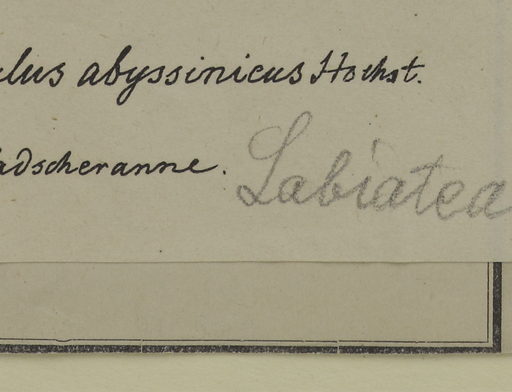 lus abyssinicus Hochst.
adscheranne.
Labiatea